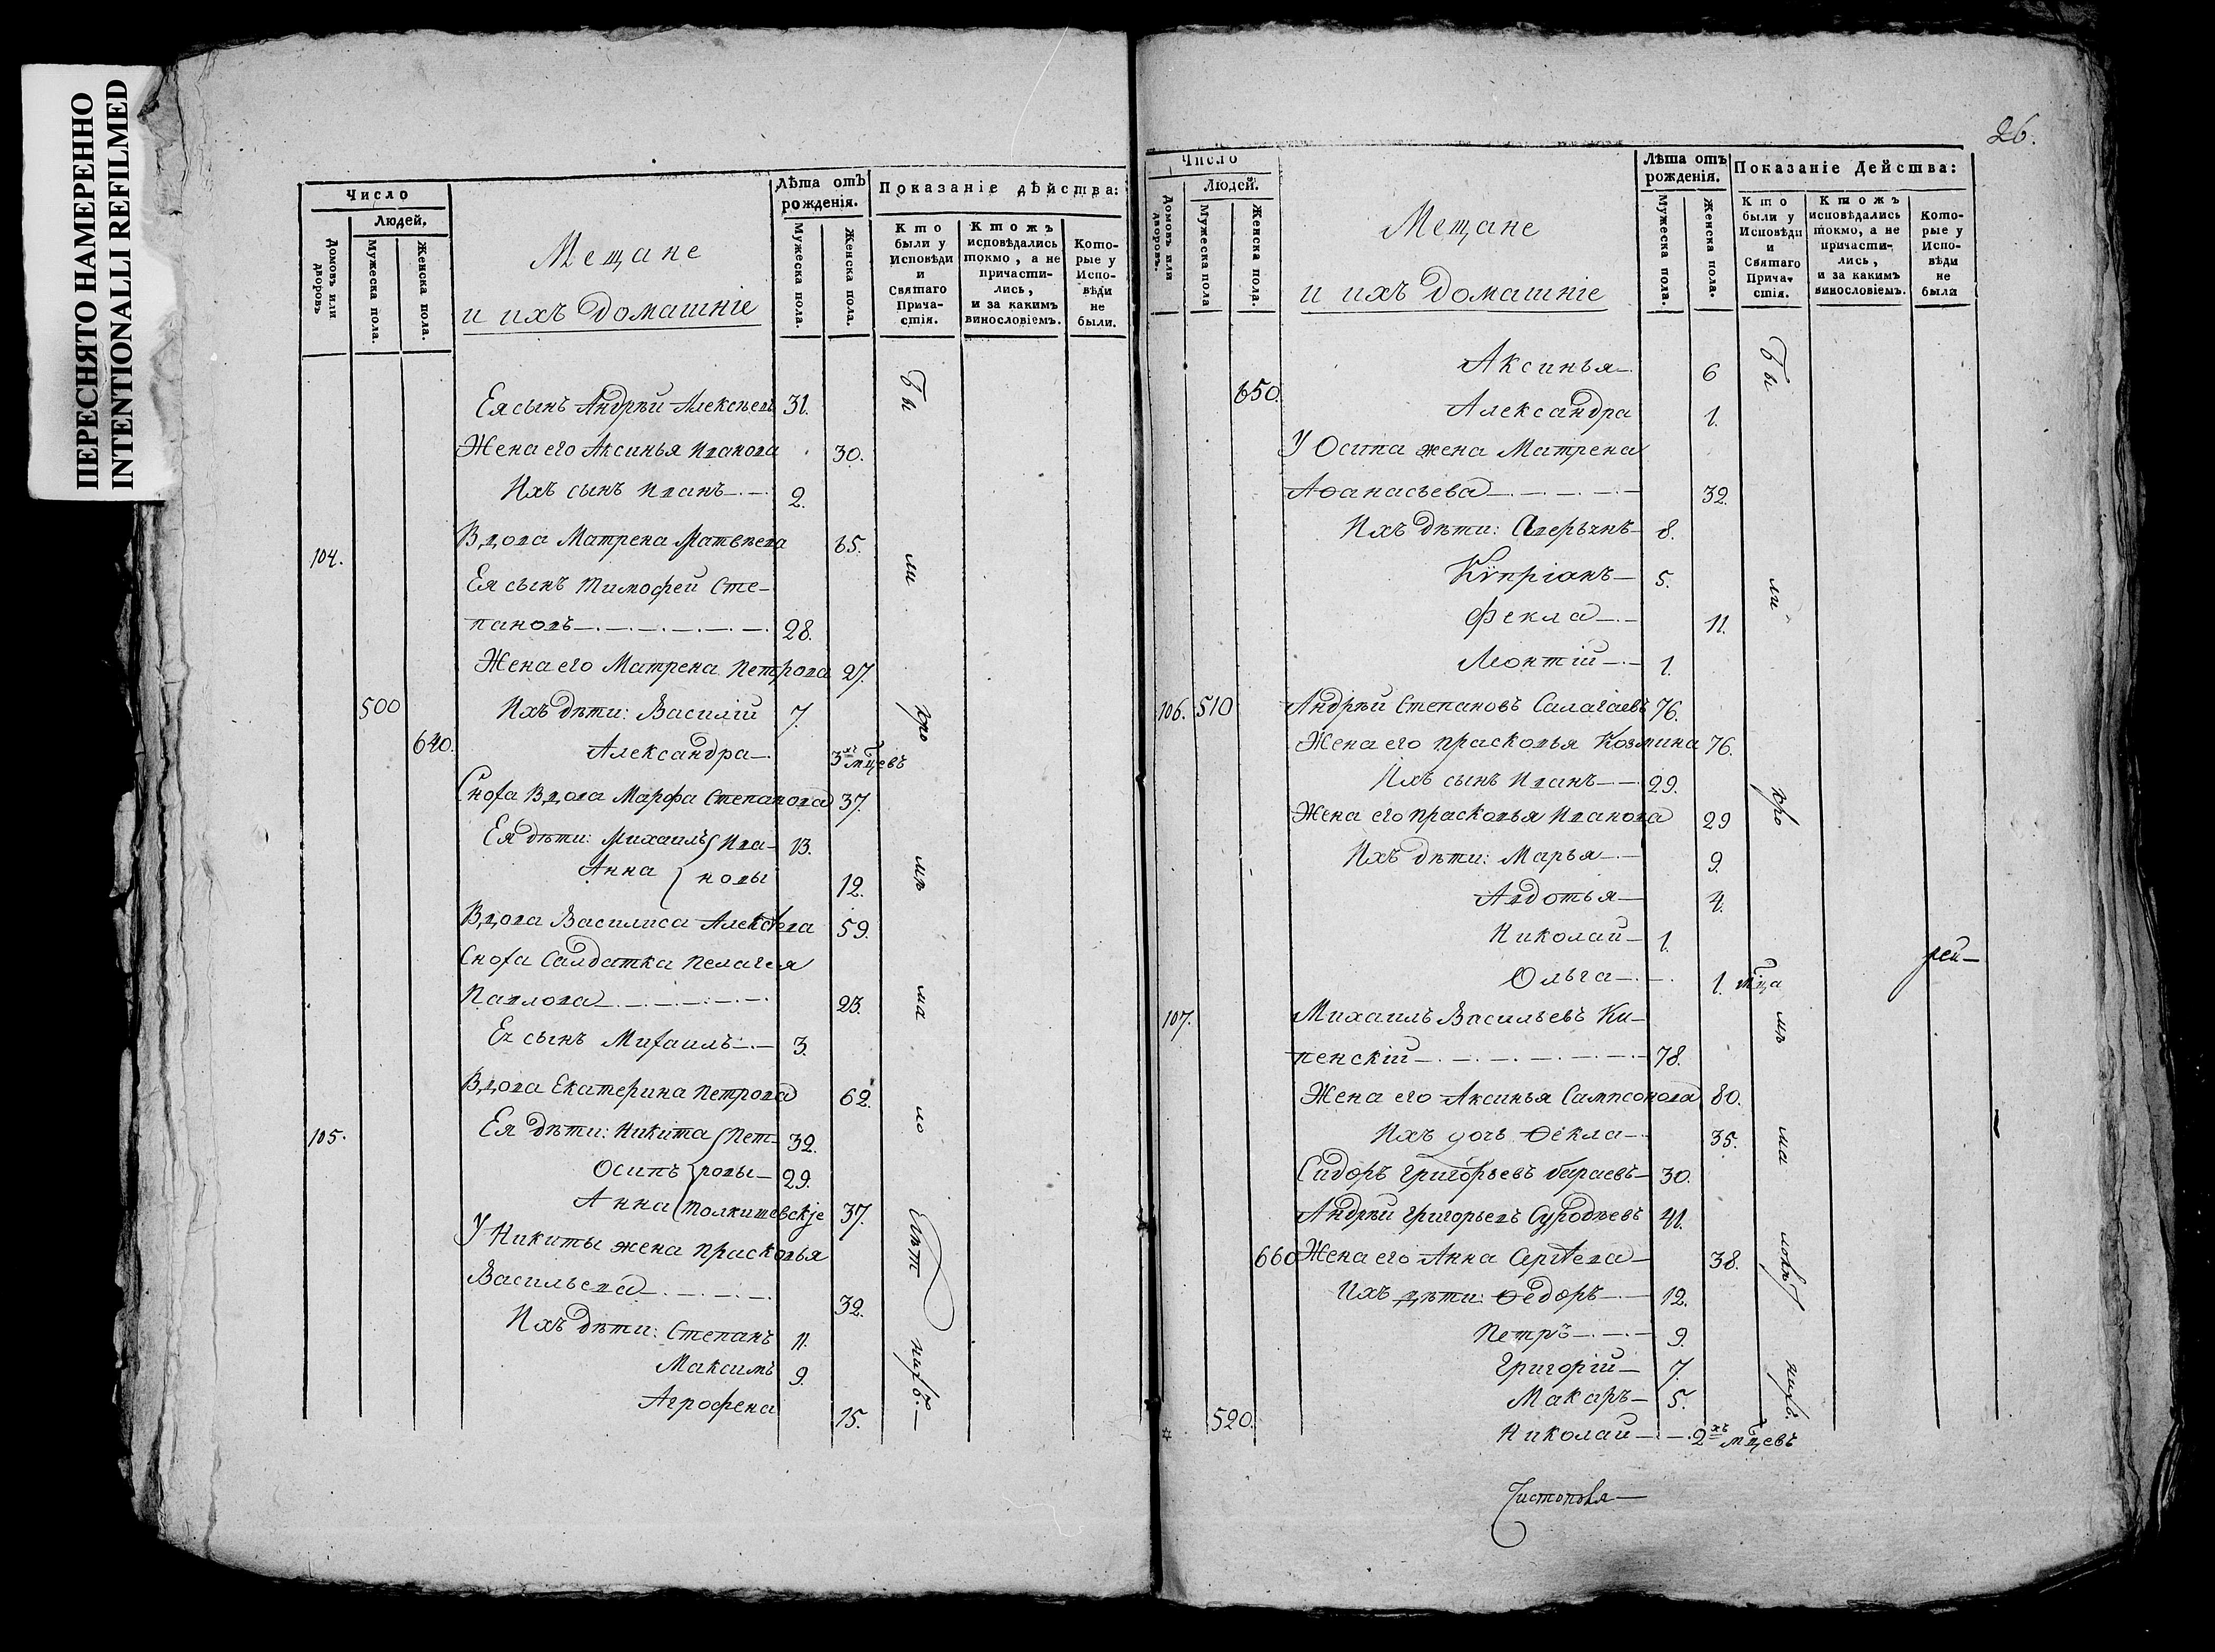 ПЕРЕСНЯТО НАМЕРЕННО
INTENTIONALLI REFILMED
Число
Людей.
Домовъ или дворовъ
Мужеска пола.
Женска пола.
Мещане
и ихъ домашніе
Лѣта отъ рожденія.
Мужеска пола.
Женска пола.
Показаніе дѣйства:
Кто были у Исповѣди и Святаго Прича-стія.
Ктожъ исповѣдались токмо, а не причасти-лись, и за какимъ винословіемъ.
Кото-рые у Испо-вѣди не были.
Ея сынъ Андрѣй Алексѣевъ 31.
Жена его Аксинья Иванова 30.
Ихъ сынъ Иванъ 2.
104. Вдова Матрена Матвѣева 65.
Ея сынъ Тимофей Сте-
пановъ 28.
Жена его Матрена Петрова 27.
500 Ихъ дѣти: Василій 7.
640. Александра 3хъ мцевъ
Сноха Вдова Марфа Степанова 37.
Ея дѣти: Михаилъ Ива- 13.
Анна новы 12.
Вдова Василиса Алексѣева 59.
Сноха Салдатка Пелагея
Павлова 23.
Ея сынъ Михаилъ 3.
Вдова Екатерина Петрова 62.
105. Ея дѣти: Никита Пет- 32.
Осипъ ровы 29.
Анна Толкишевскіе 37.
У Никиты жена Прасковья
Васильева 32.
Ихъ дѣти: Степанъ 11.
Максимъ 9.
Агрофена 15.
Бы
ли
кро
мѣ
ма
ло
лѣт
нихъ.
26.
Число
Людей.
Домовъ или дворовъ.
Мужеска пола
Женска пола.
Мещане
и ихъ домашніе
Лѣта отъ рожденія.
Мужеска пола.
Женска пола.
Показаніе Действа:
Кто были у Исповѣди и Святаго Прича-стія.
Ктожъ исповѣдались токмо, а не причасти-лись, и за какимъ винословіемъ.
Кото-рые у Испо-вѣди не были
Аксинья 6
650. Александра 1.
У Осипа жена Матрена
Аѳанасьева 32.
Ихъ дѣти: 8.
Кѵпріанъ 5.
Фекла 11.
Леонтій 1.
106. 510 Андрѣй Степановъ Салагаевъ 76.
Жена его Прасковья Козмина 76.
Ихъ сынъ Иванъ 29.
Жена его Прасковья Иванова 29
Ихъ дѣти: Марья 9.
Авдотья 4.
Николай 1.
Ольга 1. мца
107. Михаилъ Васильевъ Ки-
пенскій 78.
Жена его Аксинья Сампсонова 80.
Ихъ дочь Ѳекла 35.
Сидоръ Григорьевъ 30.
Андрѣй Григорьевъ Суродѣевъ 41.
660 Жена его Анна Сергѣева 38.
Ихъ дѣти: Ѳедоръ 12.
Петръ 9.
Григорій 7.
Макаръ 5.
520. Николай 2хъ мцевъ
Бы
ли
кро
мѣ
ма
лолѣт
нихъ.
рей
Чистополя